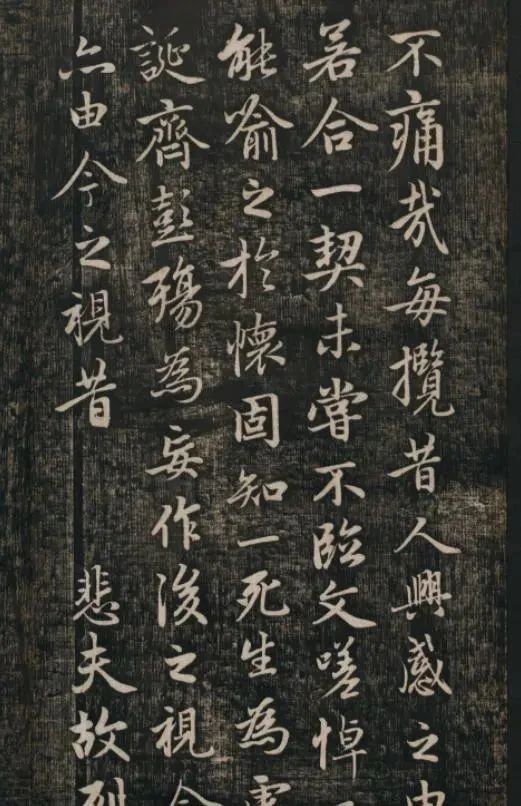 不痛哉每攬昔人興感之由
若合一契未嘗不臨文嗟悼
能喻之於懷固知一死生為虛
誕齊彭殤為妄作後之視今
亦由今之視昔 悲夫故列